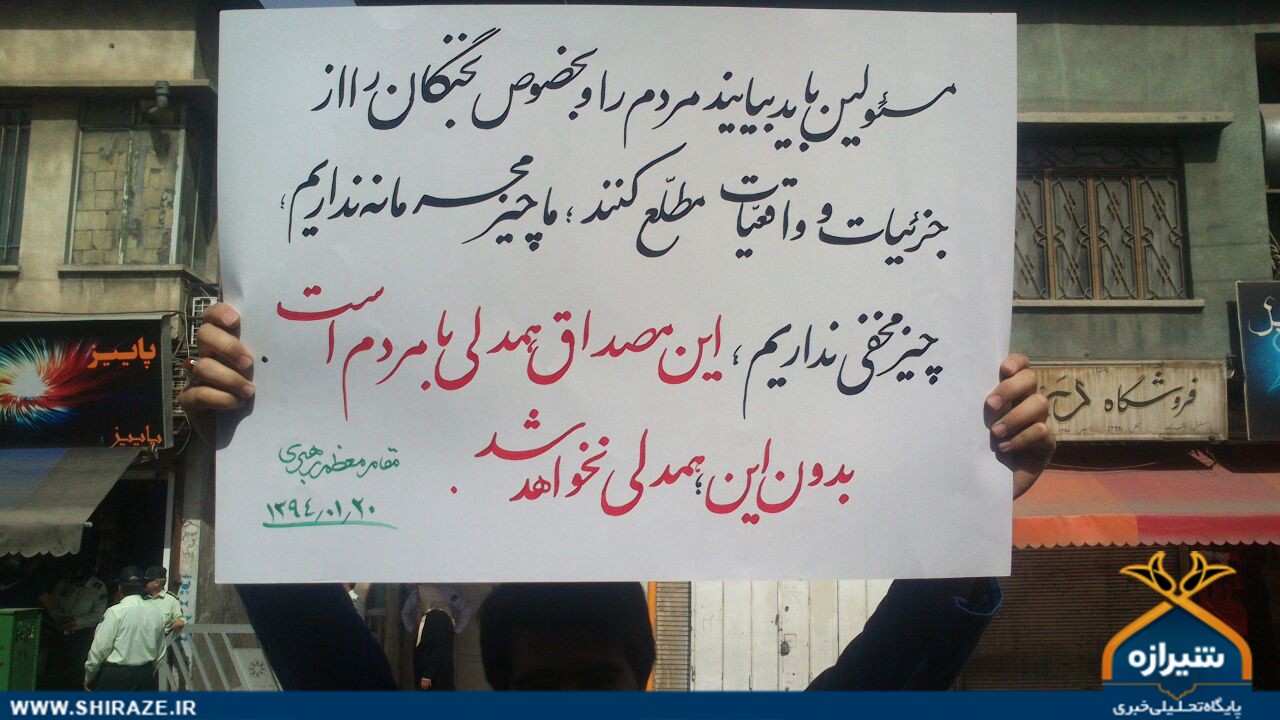 مسئولین باید بیایند مردم را و بخصوص نخبگان را از
جزئیات و واقعیّات مطلّع کنند؛ ما چیز محرمانه نداریم؛
چیز مخفی نداریم؛ این مصداق همدلی با مردم است.
بدون این، همدلی نخواهد شد.
مقام معظم رهبری
۱۳۹٤٫۰۱٫۲۰
پاییز
پاییز
فروشگاه
شیرازه
پایگاه تحلیلی خبری
WWW.SHIRAZE.IR